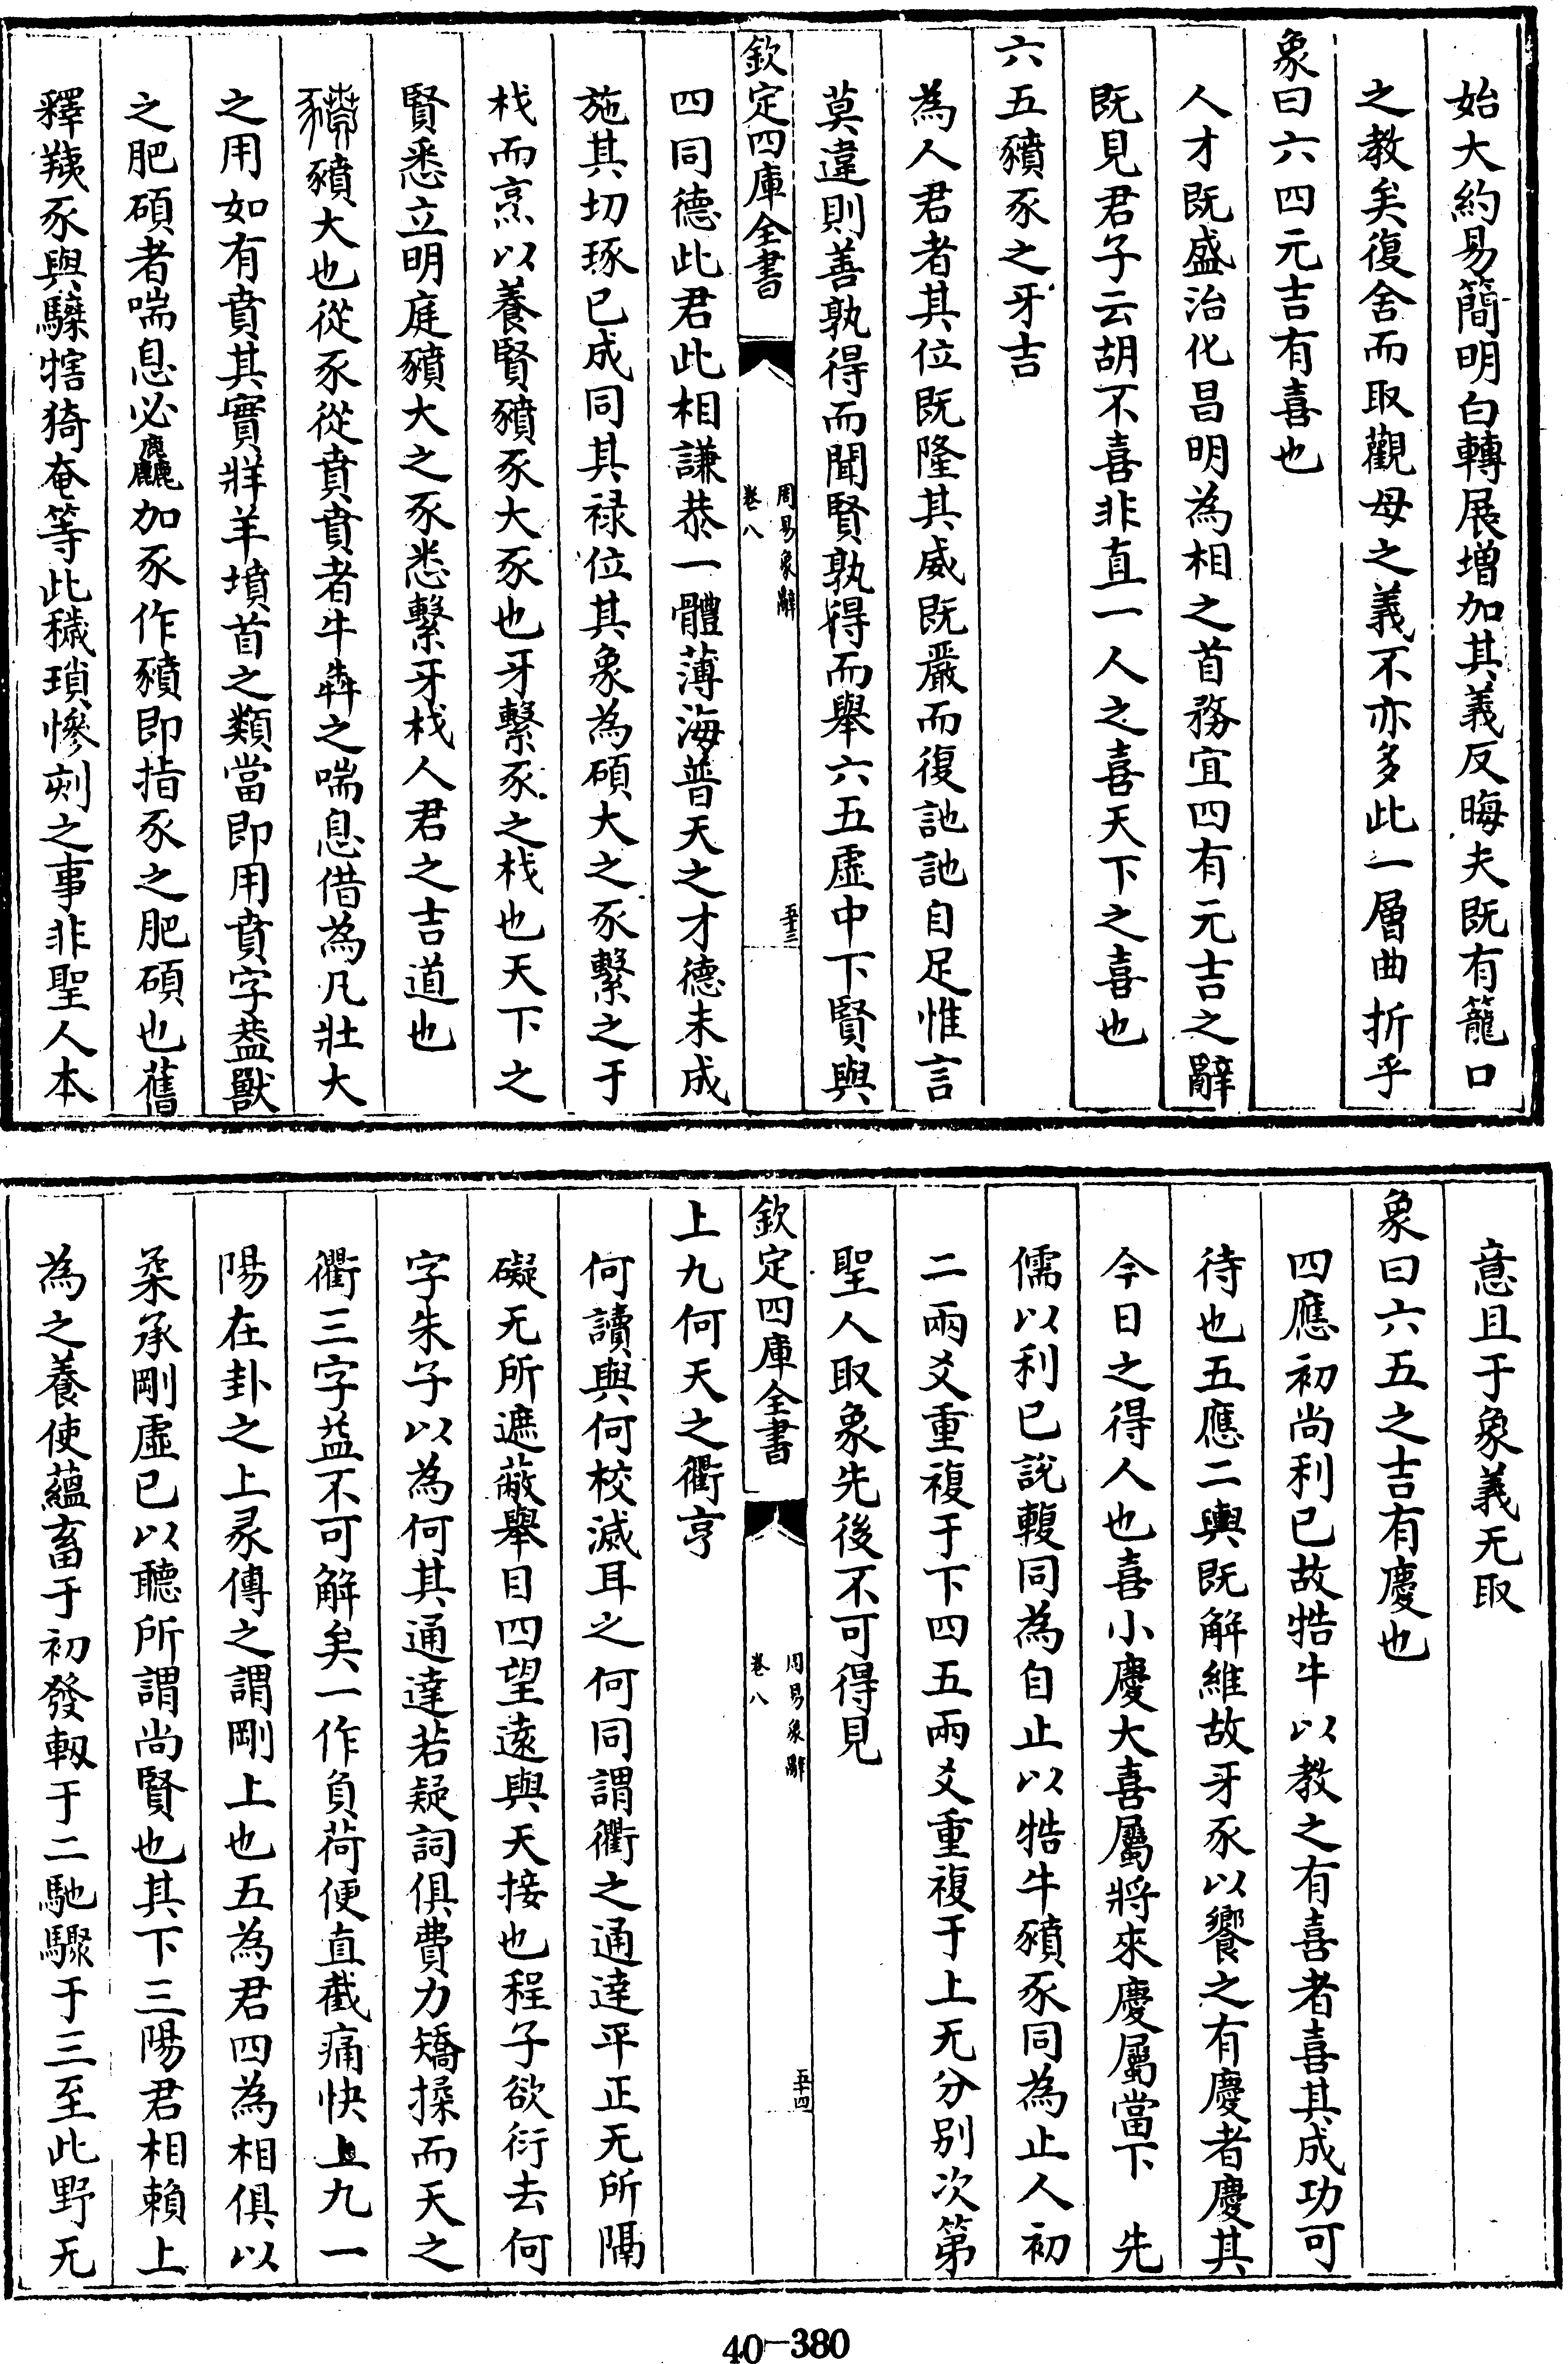 始大約易簡明白轉展增加其義反晦夫既有籠口
之教矣復舍而取觀母之義不亦多此一層曲折乎
象曰六四元吉有喜也
人才既盛治化昌明為相之首務宜四有元吉之辭
既見君子云胡不喜非直一人之喜天下之喜也
六五豶豕之牙吉
為人君者其位既隆其威既嚴而復訑訑自足惟言
莫違則善孰得而聞賢孰得而舉六五虛中下賢與
欽定四庫全書
周易象辭
卷八
五十三
四同德此君此相謙恭一體薄海普天之才德未成
施其切琢已成同其祿位其象為碩大之豕繫之于
栈而烹以養賢豶豕大豕也牙繫豕之栈也天下之
賢悉立明庭豶大之豕悉繫牙栈人君之吉道也
豶大也從豕從賁賁者牛犇之喘息借為凡壯大
之用如有賁其實牂羊墳首之類當即用賁字葢獸
之肥碩者喘息必麤加豕作豶即指豕之肥碩也舊
釋羠豕與騬犗猗奄等此穢瑣慘刻之事非聖人本
意且于象義无取
象曰六五之吉有慶也
四應初尚利已故牿牛以教之有喜者喜其成功可
待也五應二輿既解維故牙豕以饗之有慶者慶其
今日之得人也喜小慶大喜屬將來慶屬當下 先
儒以利已說輹同為自止以牿牛豶豕同為止人初
二兩爻重複于下四五兩爻重複于上无分别次第
聖人取象先後不可得見
欽定四庫全書
周易象辭
卷八
五十四
上九何天之衢亨
何讀與何校滅耳之何同謂衢之通達平正无所隔
礙无所遮蔽舉目四望遠與天接也程子欲衍去何
字朱子以為何其通達若疑詞俱費力矯揉而天之
衢三字葢不可解矣一作負荷便直截痛快上九一
陽在卦之上彖傳之謂剛上也五為君四為相俱以
柔承剛虛已以聽所謂尚賢也其下三陽君相賴上
為之養使蘊畜于初發軔于二馳驟于三至此野无
40-380